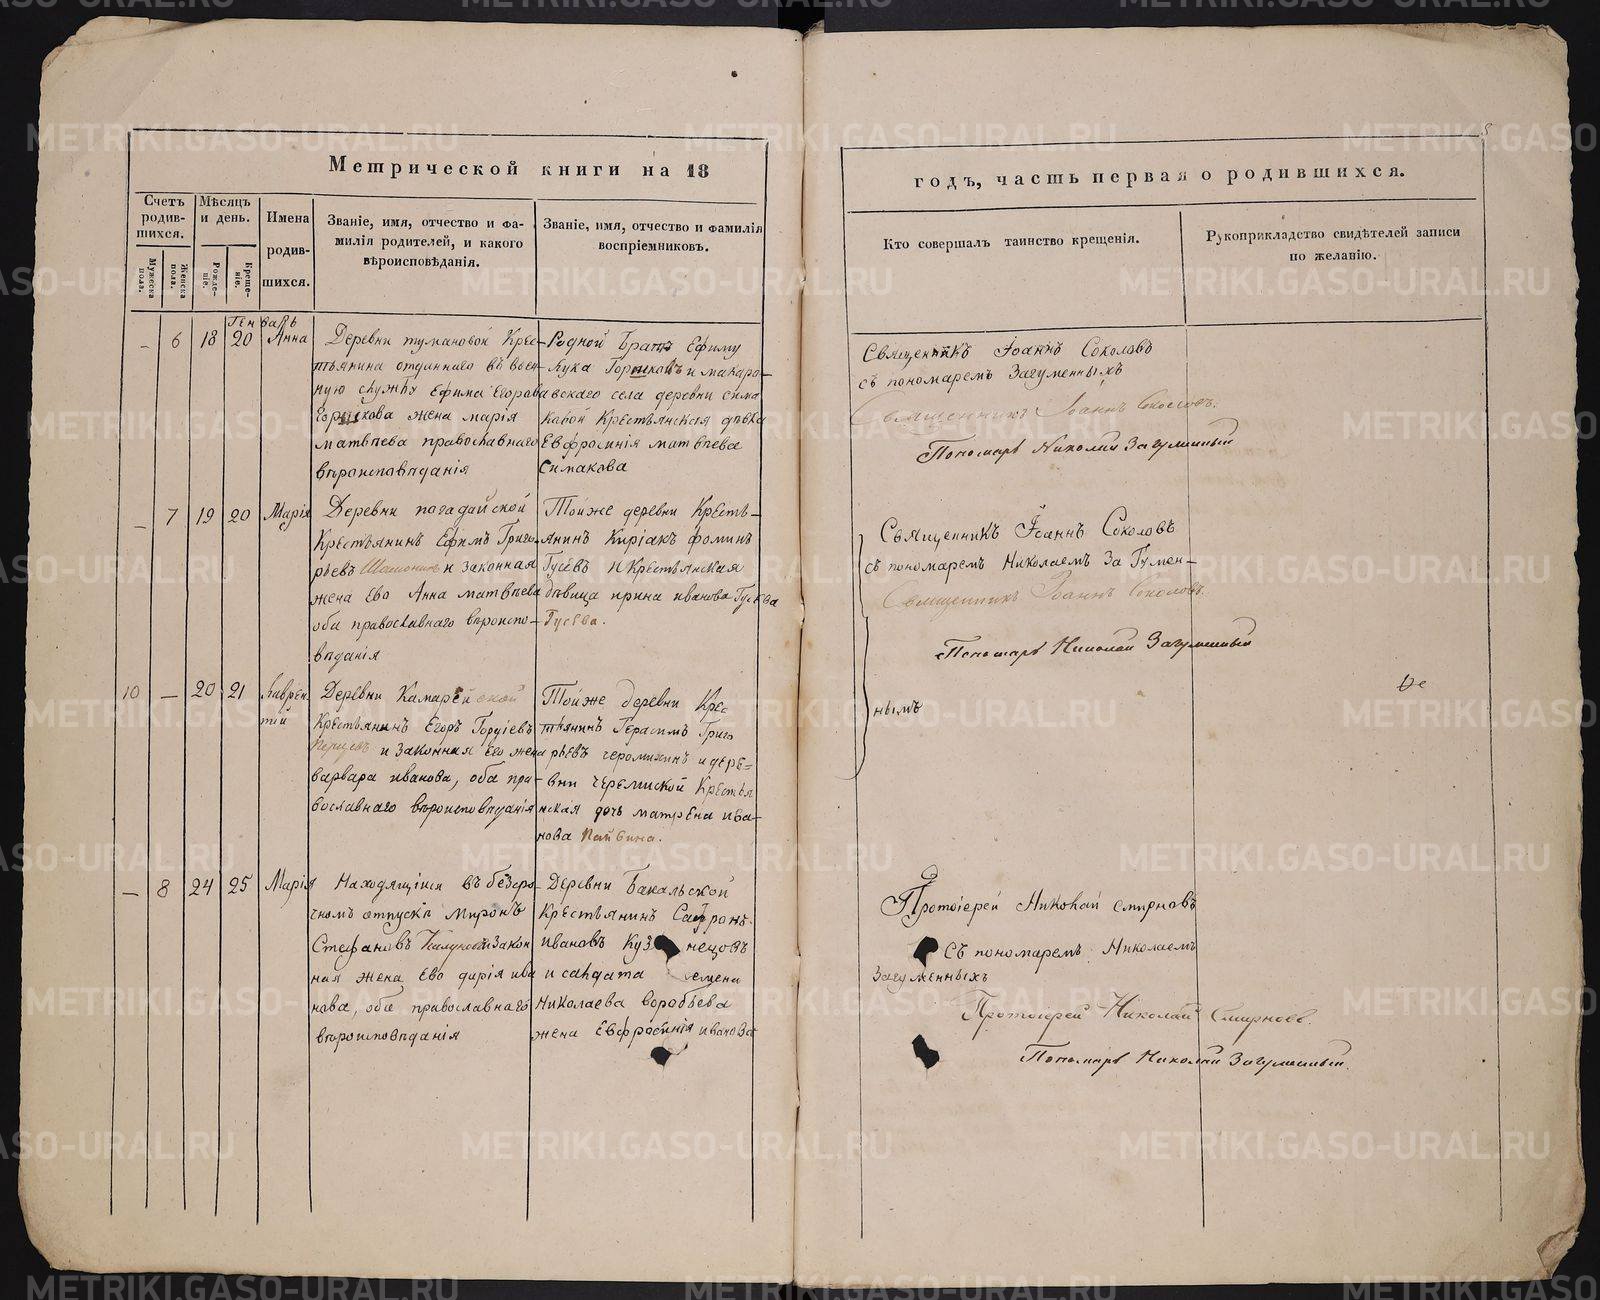 Метрической книги на 18
годъ, часть первая о родившихся.
Счетъ родив-шихся.
Мужеска пола.
Женска пола.
Мѣсяцъ и день.
Рожде-ніе.
Креще-ніе.
Имена родив-шихся.
Званіе, имя, отчество и фа-
милія родителей, и какого
вѣроисповѣданія.
Званіе, имя, отчество и фамилія
воспріемниковъ.
Кто совершалъ таинство крещенія.
Рукоприкладство свидѣтелей записи
по желанію.
Генварь
— 6 18 20 Анна
Деревни тумановой Крес-
тьянина отданнаго въ воен-
ную службу Ефима Егорова
Горшкова жена марія
матвѣева православнаго
вѣроисповѣданія
Родной братъ Ефиму
Лука Горшковъ и макаро-
вскаго села деревни сима
ковой Крестьянская дѣвка
Евфросинія матвѣева
Симакова
Священникъ Іоаннъ Соколовъ
съ пономаремъ Загуменныхъ
Священникъ Іоаннъ Соколовъ.
Пономарь Николай Загуменный
— 7 19 20 Марія
Деревни погадайской
Крестьянинъ Ефимъ Григо-
рьевъ и законная
жена Ево Анна матвѣева
оба православнаго вѣроиспо-
вѣданія
Тойже деревни Кресть-
янинъ Киріакъ фоминъ
Гусевъ и Крестьянская
дѣвица ирина иванова Гусева
Гусева.
Священникъ Іоаннъ Соколовъ
съ пономаремъ Николаемъ За Гумен-
Священникъ Іоаннъ Соколовъ.
Пономарь Николай Загуменный
нымъ
10 — 20 21 Лаврен
тій
Деревни Камарейской
Крестьянинъ Егоръ
и законная Его жена
варвара иванова, оба пра-
вославнаго вѣроисповѣданія
Тойже деревни Крес
тьянинъ Герасимъ Григо
рьевъ и дере-
вни черемиской Крестья
нская дочь матрена ива-
нова Пайвина.
— 8 24 25 Марія
Находящійся въ безсро-
чномъ отпускѣ Миронъ
Стефановъ и закон
ная жена Ево дарія ива
нова, оба православнаго
вѣроисповѣданія
Деревни Бакальской
Крестьянинъ Сафронъ
ивановъ Кузнецовъ
и салдата Семена
Николаева воробьева
жена Евфросинія иванова
Протоіерей Николай Смирновъ
съ пономаремъ Николаемъ
Загуменныхъ
Протоіерей Николай Смирновъ.
Пономарь Николай Загуменный.
METRIKI.GASO-URAL.RU